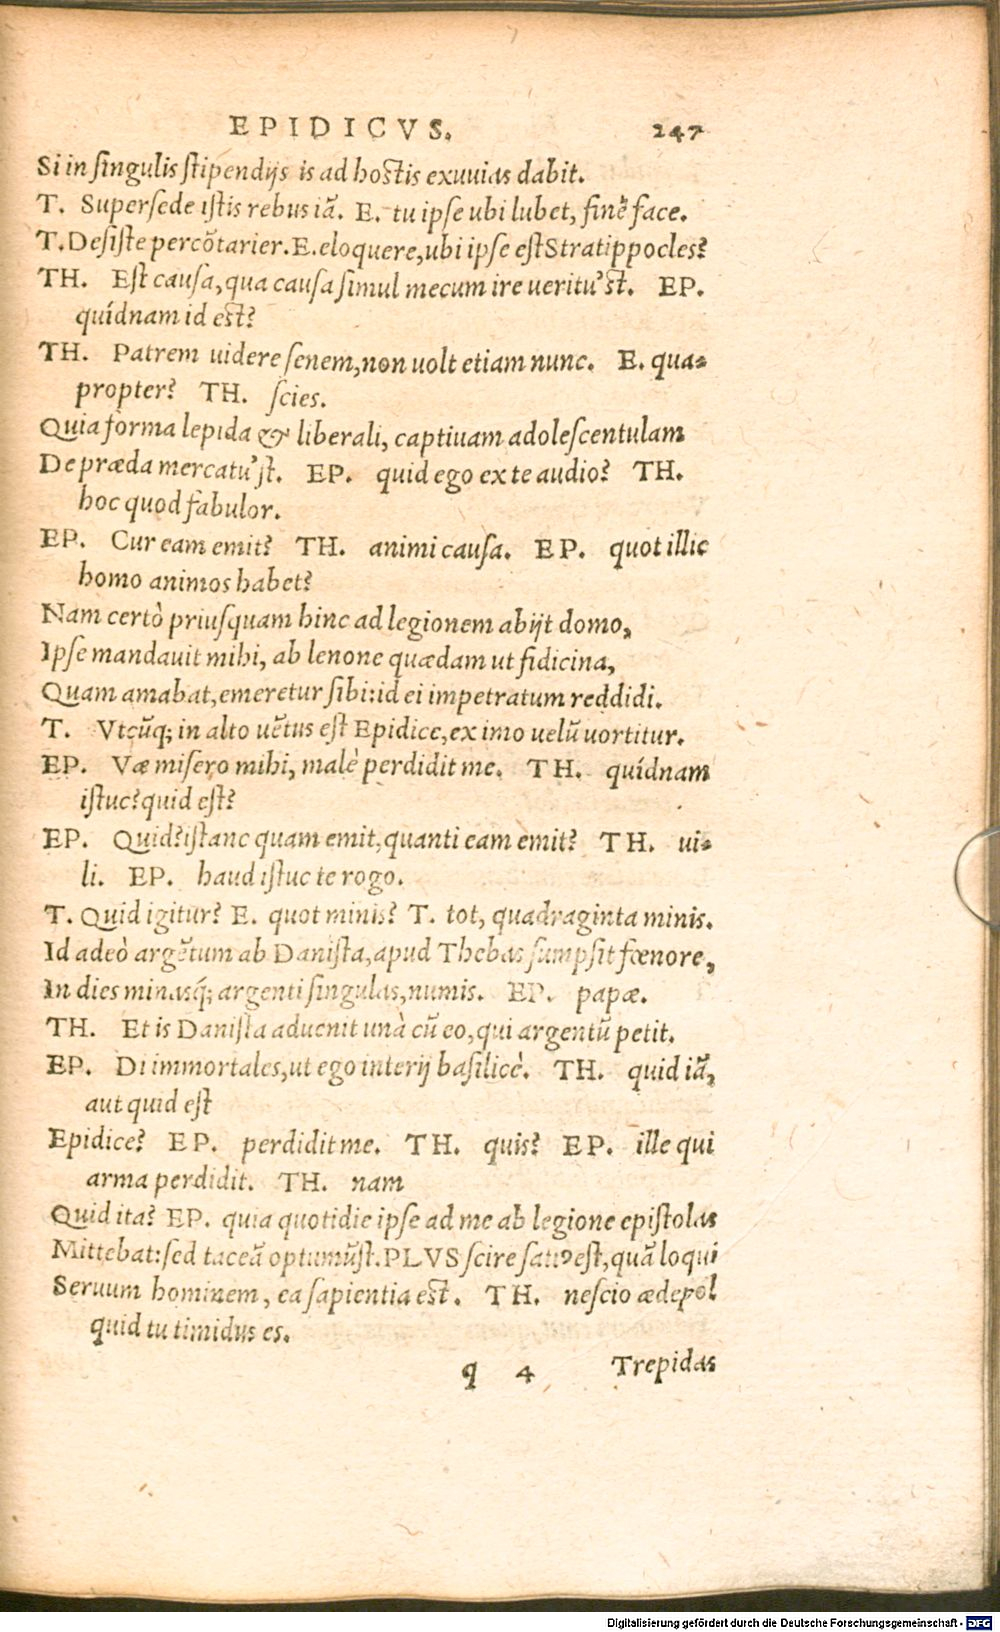 EPIDICVS. 247
Si in ſingulis ſtipendijs is ad hostis exuuias dabit.
T. Superſede iſtis rebus iã. E. tu ipſe ubi lubet, finẽ face.
T. Deſiſte percõtarier. E. eloquere, ubi ipſe eſt Stratippocles?
TH. Eſt cauſa, qua cauſa ſimul mecum ire ueritu'st. EP.
quídnam id est?
TH. Patrem uidere ſenem, non uolt etiam nunc. E. qua-
propter? TH. ſcies.
Quia forma lepida & liberali, captiuam adoleſcentulam
De præda mercatu'ſt. EP. quid ego ex te audio? TH.
hoc quod fabulor.
EP. Cur eam emit? TH. animi cauſa. EP. quot illic
homo animos habet?
Nam certò priuſquam hinc ad legionem abijt domo,
Ipſe mandauit mihi, ab lenone quædam ut fidicina,
Quam amabat, emeretur ſibi: id ei impetratum reddidi.
T. Vtcũq; in alto uẽtus eſt Epidice, ex imo uelũ uortitur.
EP. Væ miſero mihi, malè perdidit me. TH. quídnam
iſtuc? quid eſt?
EP. Quid? iſtanc quam emit, quanti eam emit? TH. ui-
li. EP. haud iſtuc te rogo.
T. Quid igitur? E. quot minis? T. tot, quadraginta minis.
Id adeò argẽtum ab Daniſta, apud Thebas ſumpſit fœnore,
In dies minasq́; argenti ſingulas, numis. EP. papæ.
TH. Et is Daniſta aduenit unà cũ eo, qui argentũ petit.
EP. Di immortales, ut ego interij baſilicè. TH. quid iã,
aut quid eſt
Epidice? EP. perdidit me. TH. quis? EP. ille qui
arma perdidit. TH. nam
Quid ita? EP. quia quotidie ipſe ad me ab legione epiſtolas
Mittebat: ſed taceã optumũſt. PLVS ſcire ſatiꝰ eſt, quã loqui
Seruum hominem, ea ſapientia est. TH. neſcio ædepol
quid tu timidus es.
q 4 Trepidas
Digitalisierung gefördert durch die Deutsche Forschungsgemeinschaft - DFG